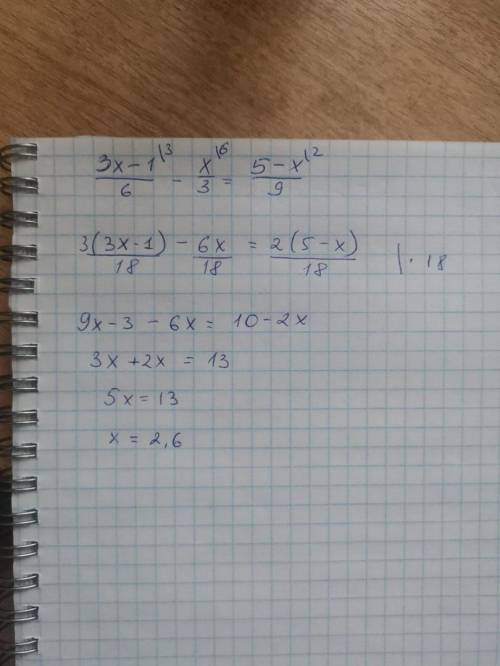 (3x-1)/6 \3 - x/3 \6 = (5-x)/9 \2
3(3x-1)/18 - 6x/18 = 2(5-x)/18 |·18
9x-3-6x= 10-2x
3x+2x = 13
5x=13
x = 2,6